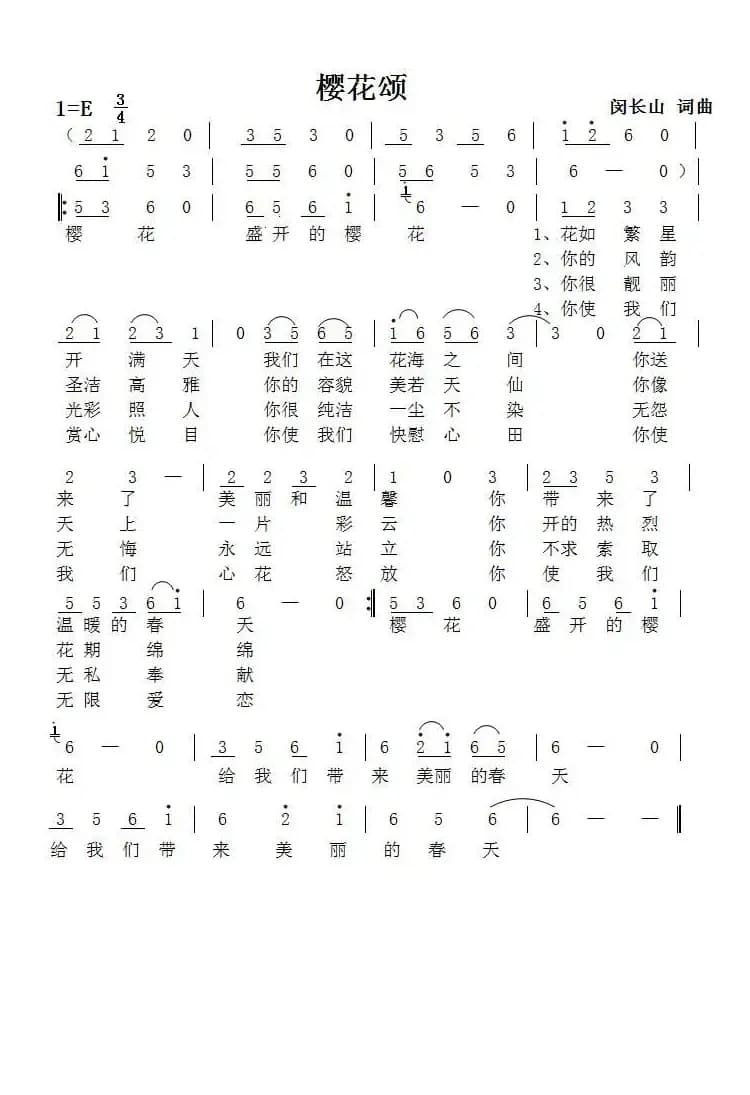 樱花颂
1=E 3/4 闵长山 词曲
（ 2 1 2 0 | 3 5 3 0 | 5 3 5 6 | i 2 6 0 |
6 i 5 3 | 5 5 6 0 | 5 6 5 3 | 6 — 0 ）|
‖: 5 3 6 0 | 6 5 6 i | i 6 — 0 | 1 2 3 3
樱 花 盛开的樱 花 1、花如 繁 星
2、你的 风 韵
3、你很 靓 丽
4、你使 我 们
2 1 2 3 1 | 0 3 5 6 5 | i 6 5 6 3 | 3 0 2 1 |
开 满 天 我们 在这 花海 之 间 你送
圣洁 高 雅 你的 容貌 美若 天 仙 你像
光彩 照 人 你很 纯洁 一尘 不 染 无怨
赏心 悦 目 你使 我们 快慰 心 田 你使
2 3 — | 2 2 3 2 | 1 0 3 | 2 3 5 3 |
来 了 美 丽 和 温 馨 你 带 来 了
天 上 一 片 彩 云 你 开的 热 烈
无 悔 永 远 站 立 你 不求 索 取
我 们 心 花 怒 放 你 使 我 们
5 5 3 6 i | 6 — 0 :‖ 5 3 6 0 | 6 5 6 i |
温 暖 的 春 天 樱 花 盛 开 的 樱
花 期 绵 绵
无 私 奉 献
无 限 爱 恋
i 6 — 0 | 3 5 6 i | 6 2 i 6 5 | 6 — 0 |
花 给 我 们 带 来 美丽 的春 天
3 5 6 i | 6 2 i | 6 5 6 | 6 — — ‖
给 我 们 带 来 美 丽 的 春 天